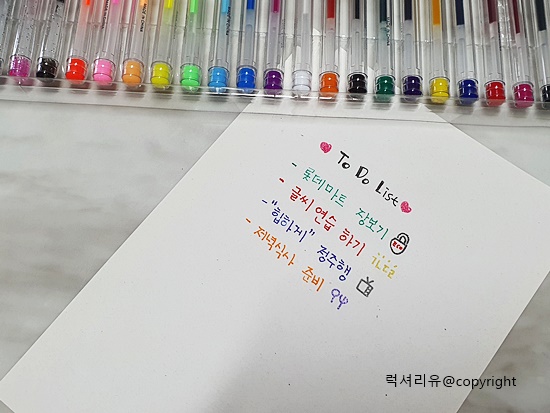 To Do List
- 롯데마트 장보기
- 글씨연습 하기
- "힙하게" 정주행
- 저녁식사 준비
럭셔리유@copyright